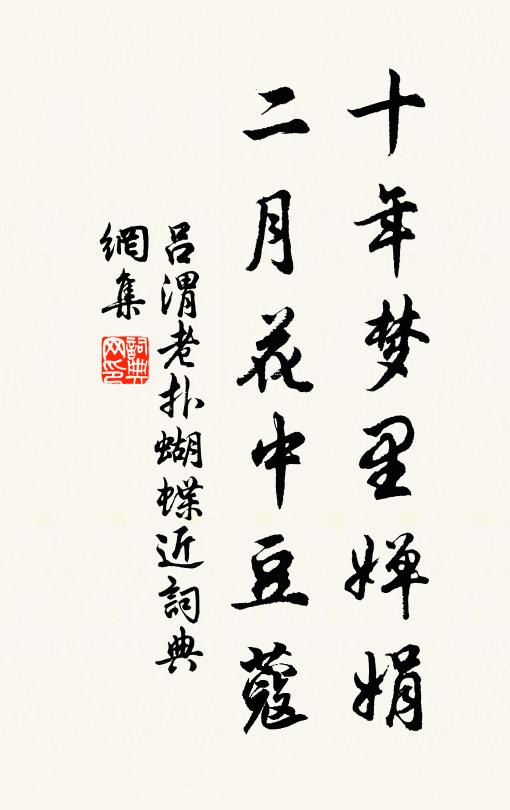 十年梦里婵娟
二月花中豆蔻
吕渭老扑蝴蝶近詞典
網集
詞典
网印